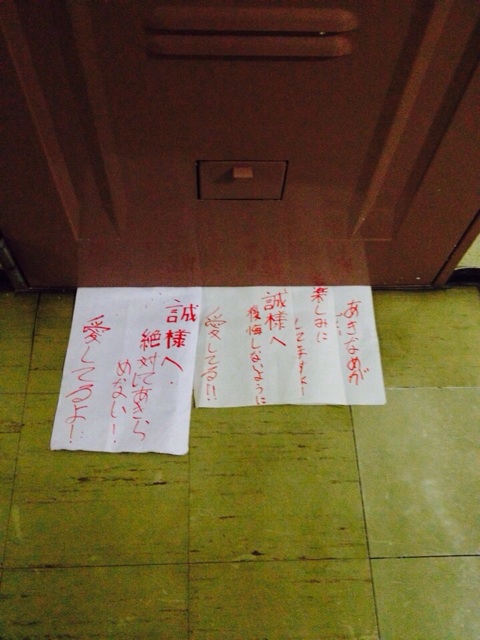 誠様へ
絶対にあきら
めない!
愛してるよ!
あきなめが
楽しみに
してますよ!
誠様へ
後悔しないように
愛してる!!